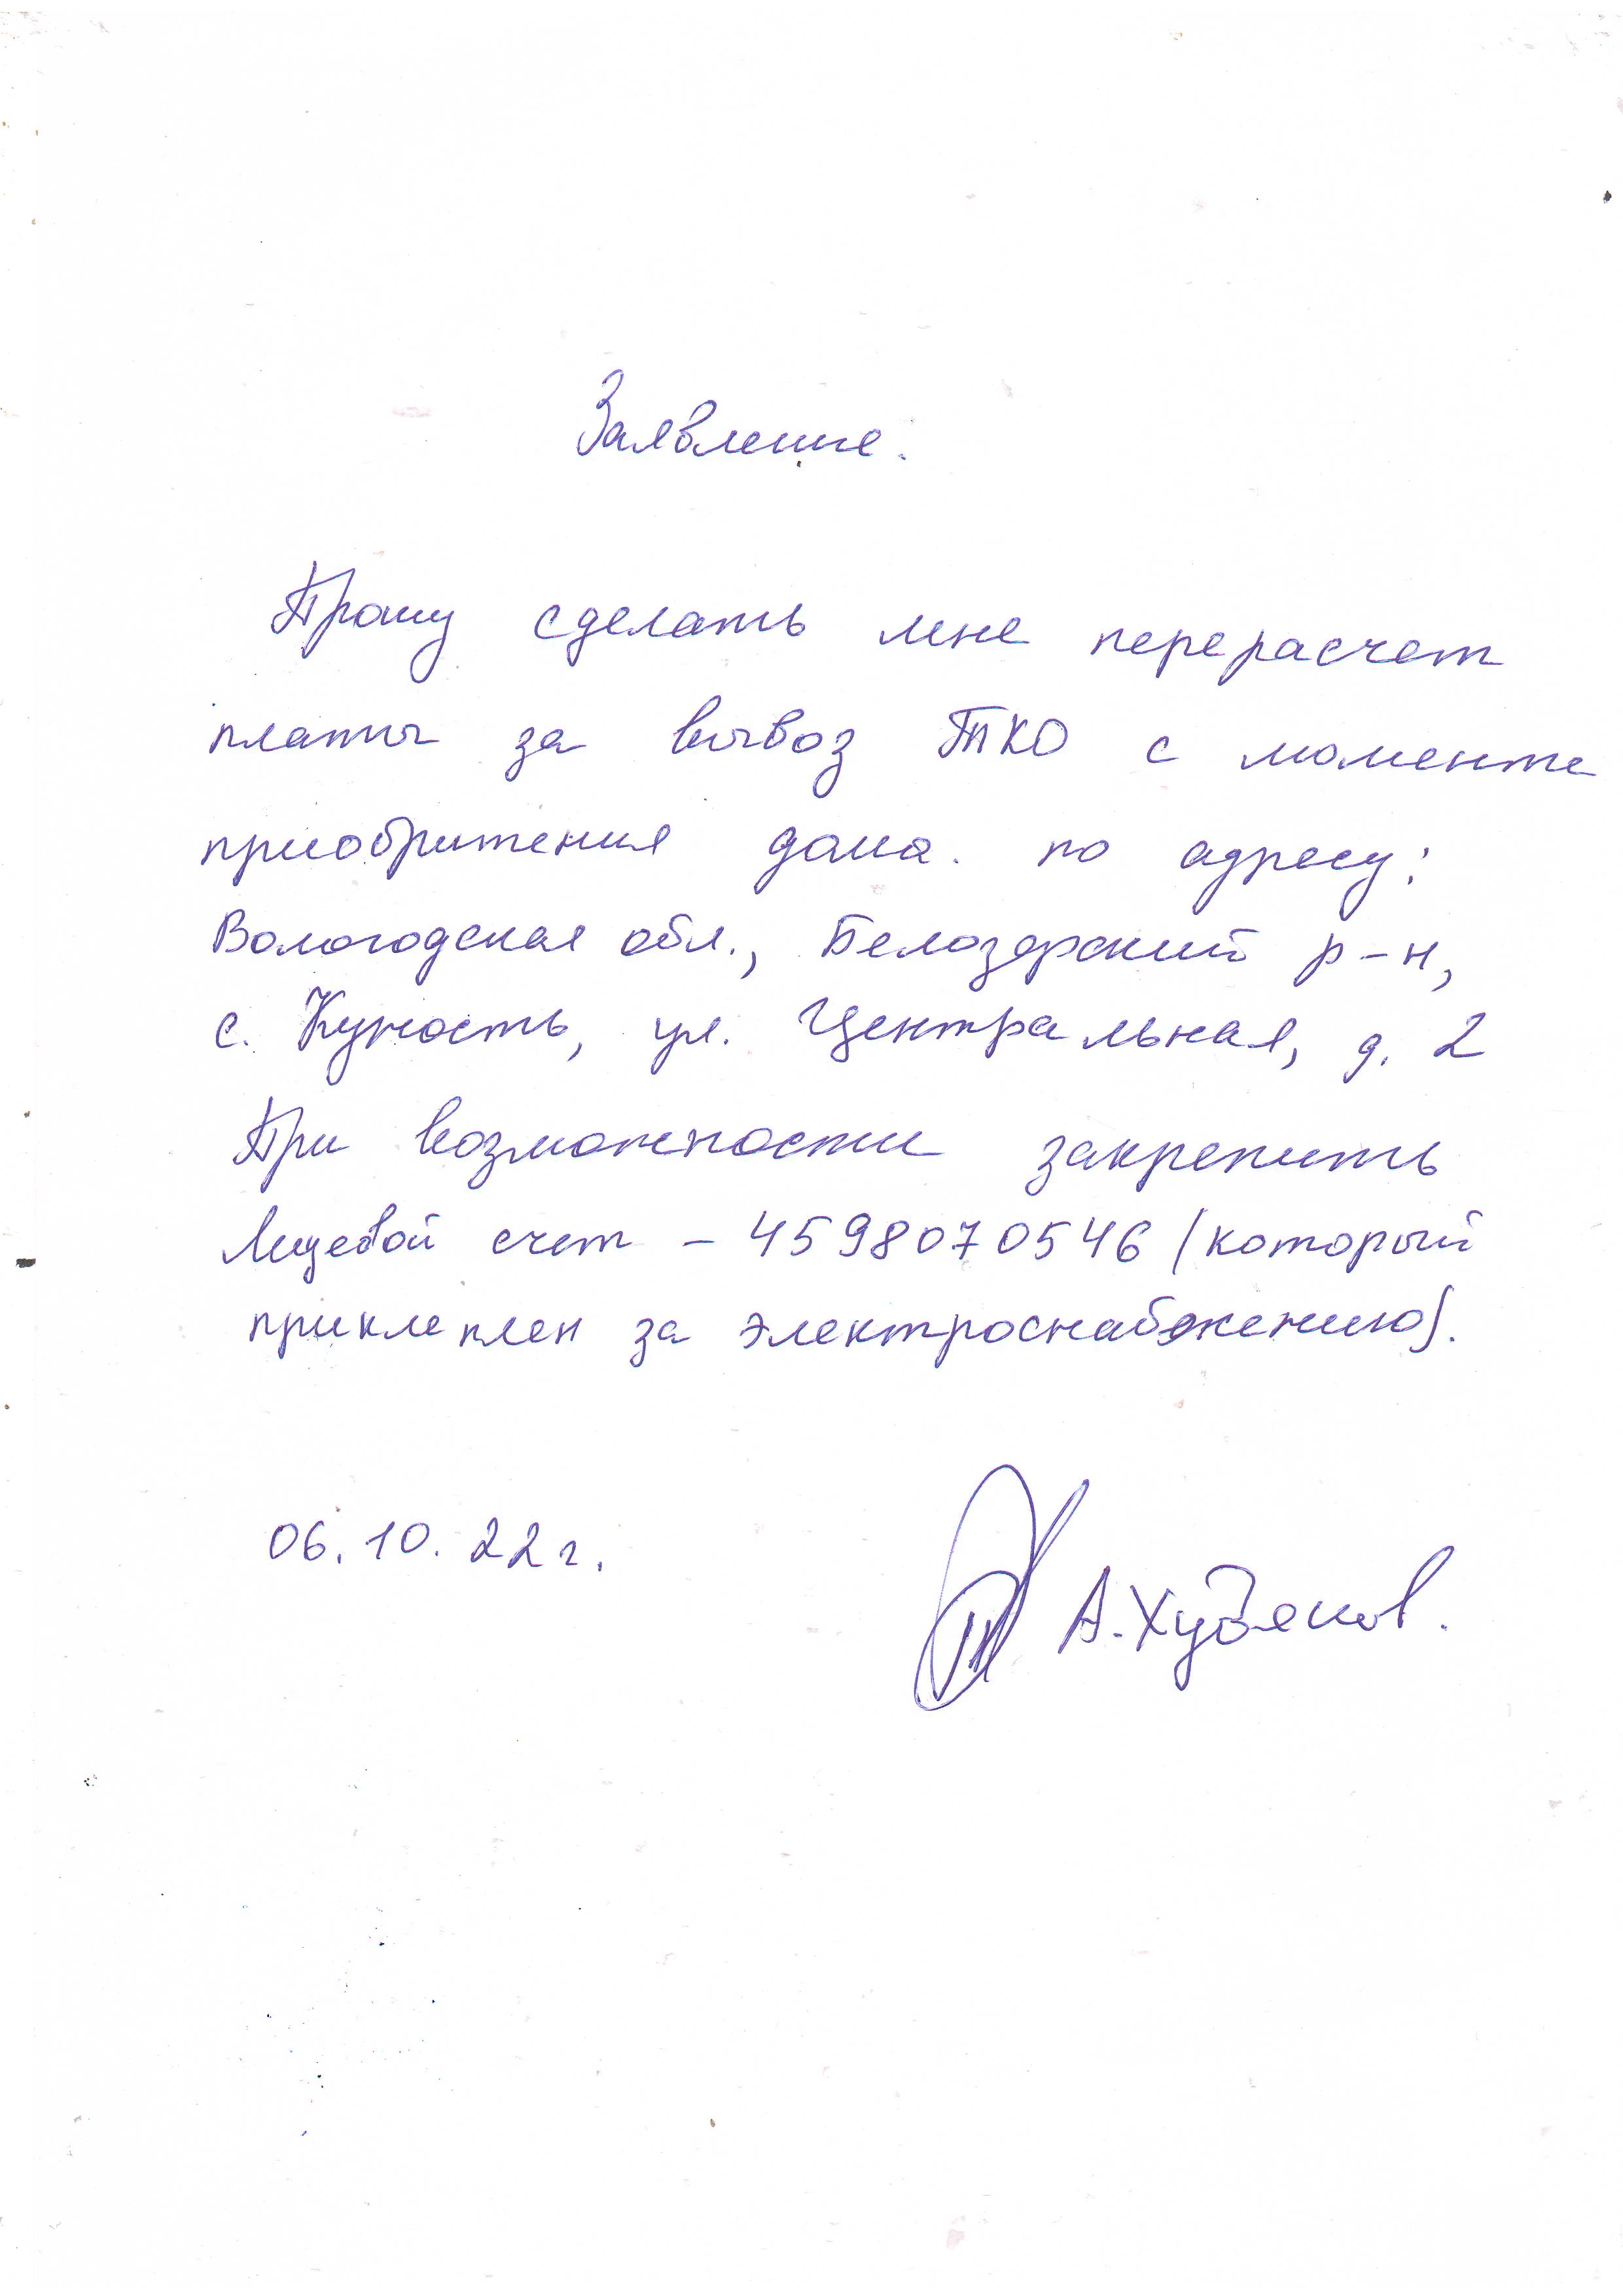 Заявление.
Прошу сделать мне перерасчет
платы за вывоз ТКО с момента
приобритения дома. по адресу:
Вологодская обл., Белозерский р-н,
с. Куность, ул. Центральная, д. 2
При возможности закрепить
Лицевой счет - 4598070546 (который
приклеплен за электроснабжению).
06.10.22г.
А.Худяков.